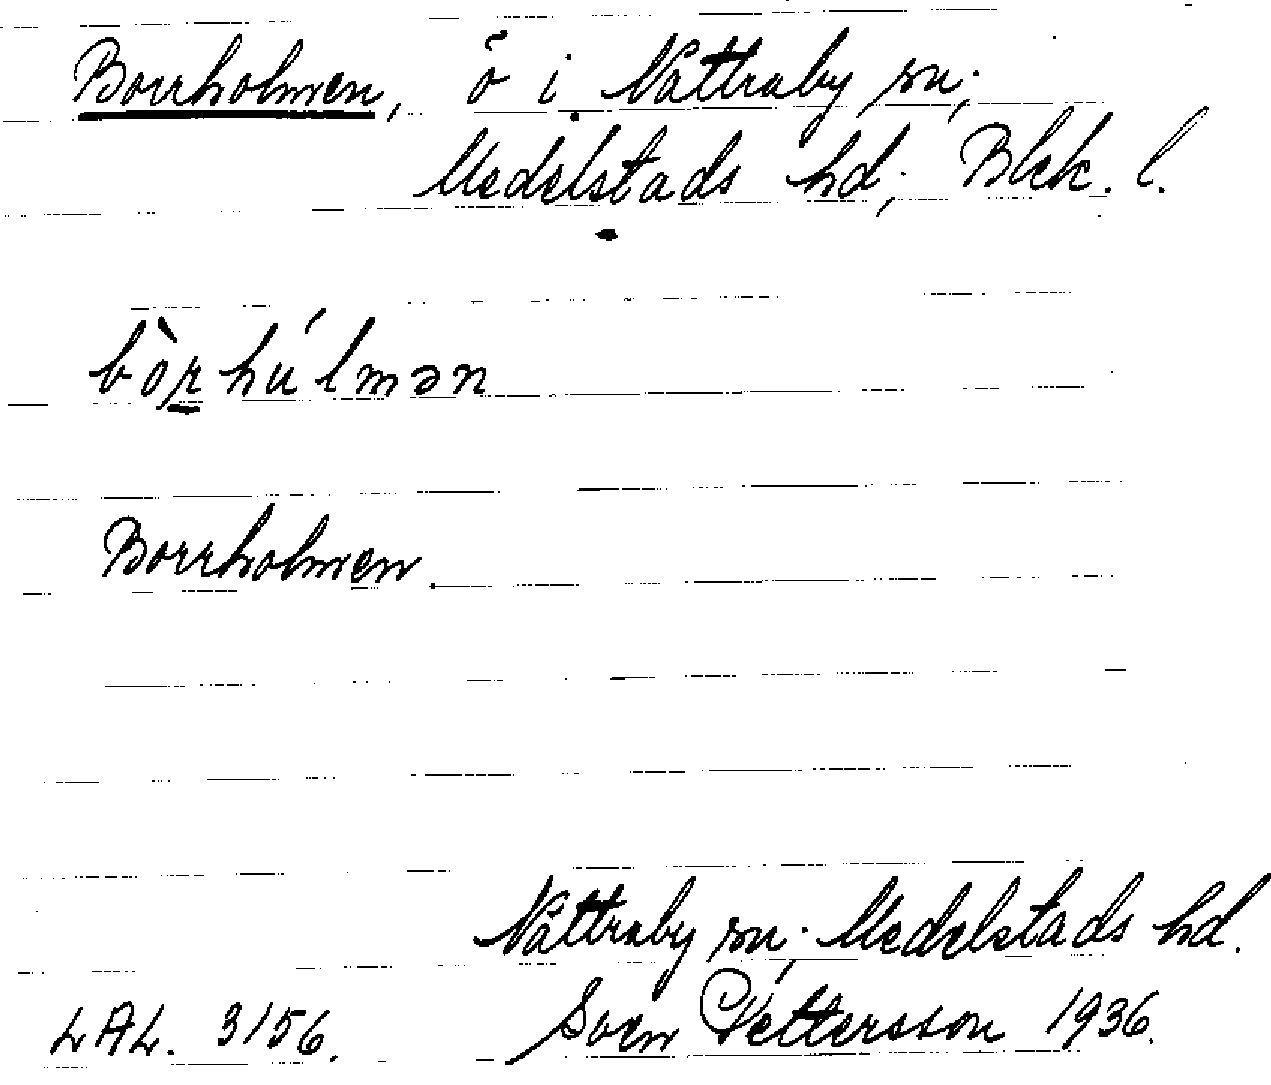 Borrholmen, ö i Nättraby sn;
Medelstads hd; Blek. l.
bòr̲húlmən
Borrholmen.
Nättraby sn; Medelstads hd.
LAL. 3156. Sven Pettersson 1936.